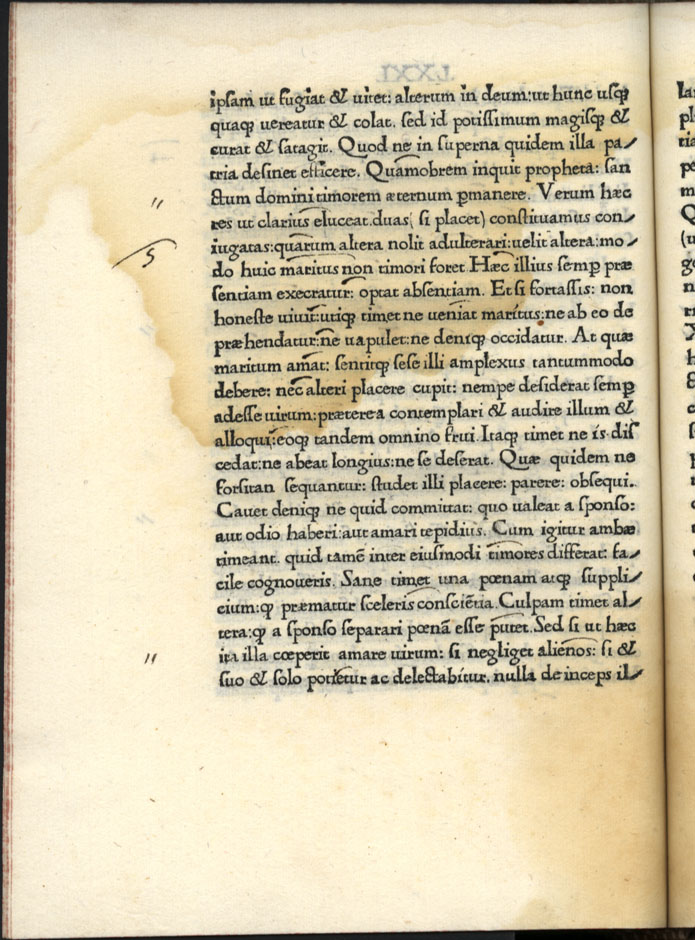 ipsam ut fugiat & uitet: alterum in deum:ut hunc usq̧
quaq̧ uereatur & colat. sed id potissimum magisq̧ &
curat & satagit. Quod ne in superna quidem illa pa/
tria desinet efficere. Quamobrem inquit propheta: san
ctum domini timorem æternum ꝑmanere. Verum hæc
res ut clarius eluceat.duas( si placet) constituamus con/
iugatas:quarum altera nolit adulterari:uelit altera:mo/
do huic maritus non timori foret Hæc illius semꝑ præ
sentiam execratur: optat absentiam. Et si fortassis: non
honeste uiuit:utiq̧ timet ne ueniat maritus:ne ab eo de
præhendatur:ne uapulet:ne deniq̧ occidatur. At quæ
maritum amat: sentitq̧ sese illi amplexus tantummodo
debere: nec alteri placere cupit: nempe desiderat semꝑ
adesse uirum:præterea contemplari & audire illum &
alloqui:eoq̧ tandem omnino frui.Itaq̧ timet ne is dis
cedat:ne abeat longius:ne se deserat. Quæ quidem ne
forsitan sequantur: studet illi placere: parere: obsequi.
Cauet deniq̧ ne quid committat: quo ualeat a sponso:
aut odio haberi:aut amari tepidius. Cum igitur ambæ
timeant. quid tamē inter eiusmodi timores differat: fa/
cile cognoueris. Sane timet una pœnam atq̧ suppli/
cium:q̧ præmatur sceleris consciētia.Culpam timet al/
tera:q̧ a sponso separari pœnā esse putet.Sed si ut hæc
ita illa cœperit amare uirum: si negliget alienos: si &
suo & solo potietur ac delectabitur. nulla deinceps il/